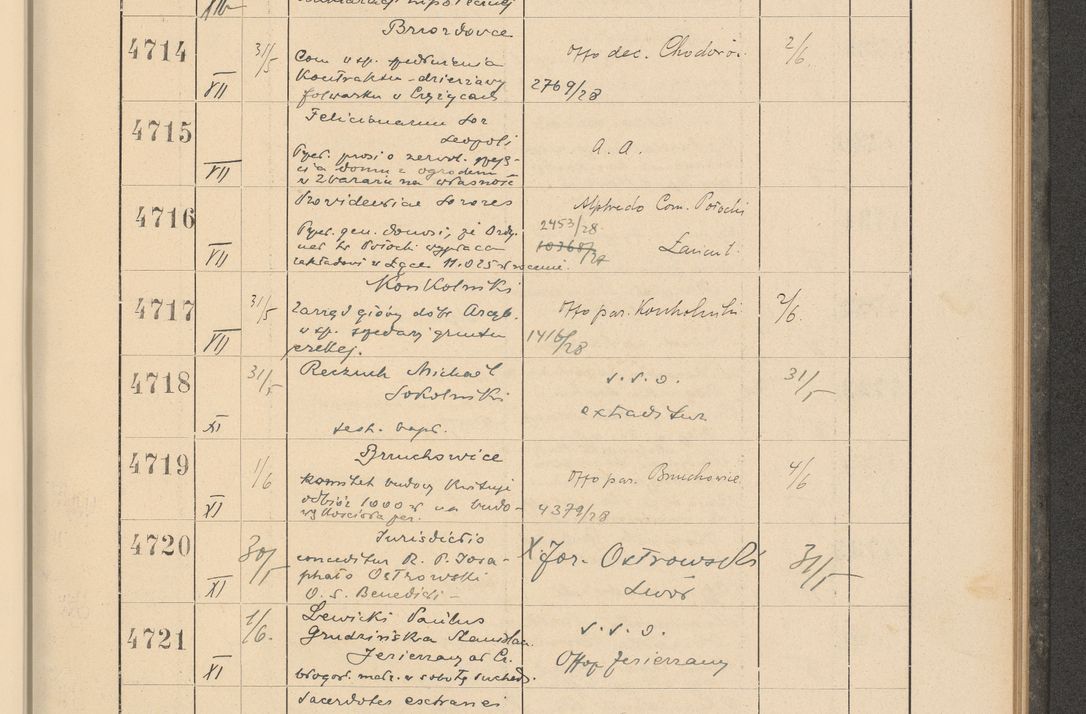 4714
31/5
VII
Brzozdowce
Com. v sp.
Kontraktu dzierżawy
folwarku w
Offo dec. Chodorov.
2769/28
2/6
4715
VII
Felicianarum Sor
Leopoli
prosi o zezwol.
cia domu z ogrodem
w Zbarażu na własność
a. a.
4716
VII
Providentiae Sorores
gen. donosi, że Ordy-
nat hr Potocki wypłaca
zakładowi w Łące 11.025 zł rocznie.
Alfredo Com. Potocki
2453/28
Łańcut.
4717
31/5
VII
Konkolniki
Zarząd główny dóbr Arcyb.
w sp. sprzedaży gruntu
cerkwi.
Offo par. Konkolniki
1416/28
2/6.
4718
31/5
XI
Reczuch Michael
Sokolniki
test. bapt.
s. s. o.
extraditur
31/5
4719
1/6
XI
Brzuchowice
komitet budowy kwituje
odbiór 1000 zł na budo-
wę kościoła par.
Offo par. Brzuchowice
4379/28
4/6
4720
30/5
XI
Jurisdictio
conceditur R. P. Josa-
phato Ostrowski
O. S. Benedicti -
X. Joz. Ostrowski
Lwów
31/5
4721
1/6.
XI
Lewicki Paulus
Grudzińska Stanisława
Jezierzany ad Cz.
błogosł. małż. w sobotę suched.
s. s. o.
Offop Jezierzany
Sacerdotes extranei